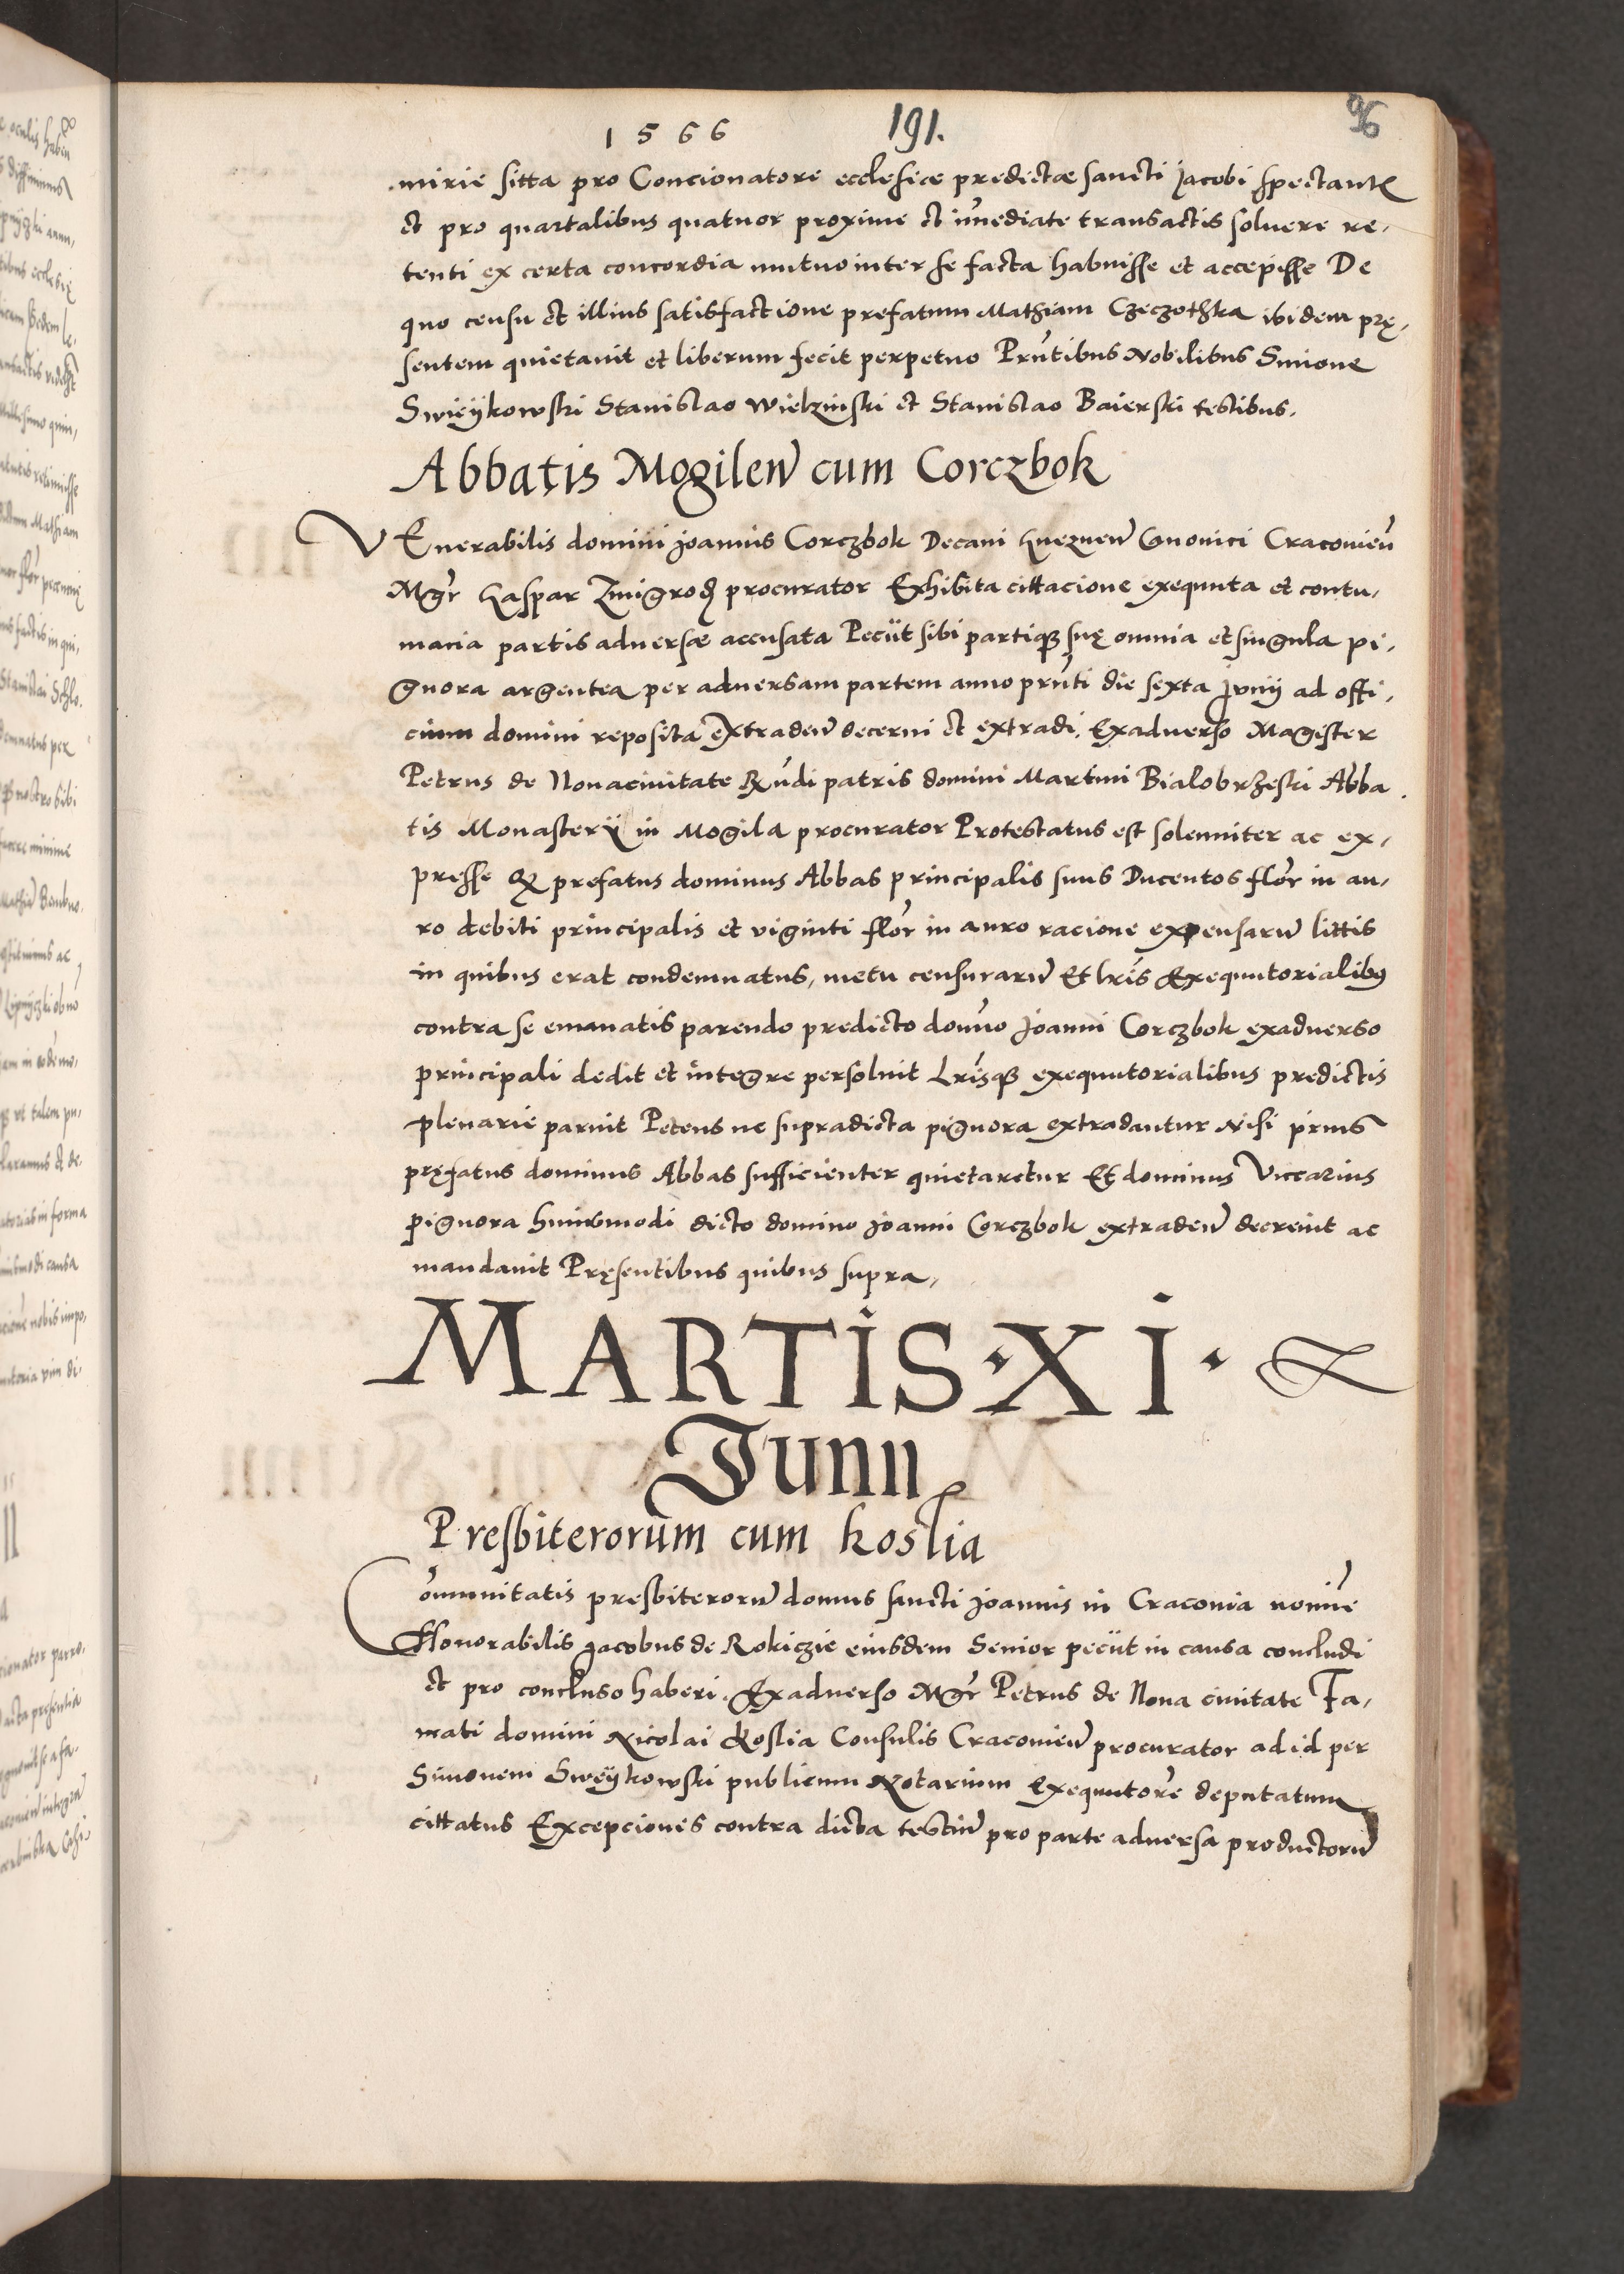 1566 191. 96
mirie sitta pro Concionatore ecclesice predictæ sancti Jacobi spectantꝭ
et pro quartalibus quatuor proxime et im̃ediate transactis soluere re,
tenti ex certa concordia mutuo inter se facta habuisse et accepisse De
quo censu et illius satisfactione prefatum Mathiam Czeczothka ibidem prę,
sentem quietauit et liberum fecit perpetuo Prñtibus Nobilibus Simone
Swieÿkowski Stanislao Wielzinski et Stanislao Baierski testibus.
Abbatis Mogileñ cum Corczbok
VEnerabilis domini Joannis Corczbok Decani Gnezneñ Canonici Cracouieñ
Mgr̃ Gaspar Zmigrod procurator Exhibita cittacione exequuta et contu,
macia partis aduersæ accusata Peciit sibi partiqꝫ suę omnia et singula pi,
gnora argentea per aduersam partem anno prñti die sexta Junij ad offi,
cium domini reposita extradeñ decerni et extradi. Exaduerso Magister
Petrus de Nouaciuitate Rũdi patris domini Martini Bialobrzeski Abba
tis Monasterij in Mogila procurator Protestatus est solenniter ac ex,
presse Qꝫ prefatus dominus Abbas principalis suus Ducentos flor̃ in au,
ro debiti principalis et viginti flor̃ in auro racione expensarũ littis
in quibus erat condemnatus, metu censurarũ Et lr̃is Exequutorialibꝰ
contra se emanatis parendo predicto domĩo Joanni Corczbok exaduerso
principali dedit et integre persoluit Lr̃isqꝫ exequutorialibus predictis
plenarie paruit Petens ne supradicta pignora extradantur Nisi prius
pręfatus dominus Abbas sufficienter quietaretur Et dominus Viccarius
pignora huiusmodi dicto domino Joanni Corczbok extradeñ decreuit ac
mandauit Pręsentibus quibus supra,
MARTIS·XI·
Junii
Presbiterorum cum Koslia
Com̃unitatis presbiterorũ domus sancti Joannis in Cracouia nomĩe
Honorabilis Jacobus de Rokiczie eiusdem Senior peciit in causa concludi
et pro concluso haberi. Exaduerso Mgr̃ Petrus de Noua ciuitate Fa,
mati domini Nicolai Koslia Consulis Cracouieñ procurator ad id per
Simonem Sweÿkowski publicum Notarium Exequutorẽ deputatum
cittatus Excepciones contra dicta testiũ pro parte aduersa productorũ